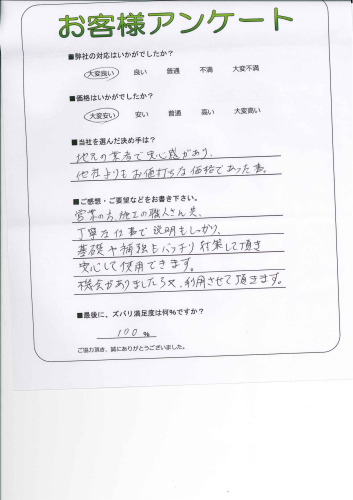 お客様アンケート
■弊社の対応はいかがでしたか?
大変良い 良い 普通 不満 大変不満
■価格はいかがでしたか?
大変安い 安い 普通 高い 大変高い
■当社を選んだ決め手は?
地元の業者で安心感があり、
他社よりもお値打ちな価格であった事。
■ご感想・ご要望などをお書き下さい。
営業の方、施工の職人さん共、
丁寧な仕事で説明もしっかり、
基礎や補強もバッチリ対策して頂き
安心して使用できます。
機会がありましたら又、利用させて頂きます。
■最後に、ズバリ満足度は何%ですか?
100 %
ご協力頂き、誠にありがとうございました。